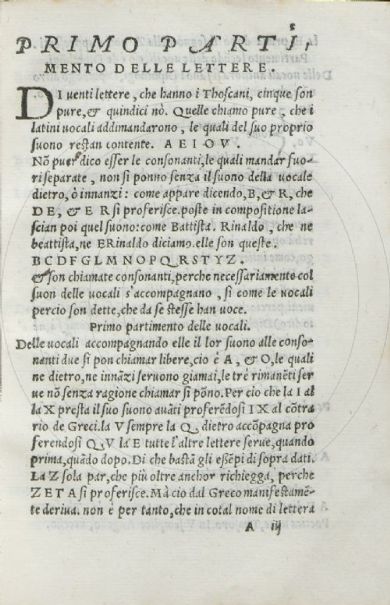 PRIMO PARTI,
MENTO DELLE LETTERE.
DI venti lettere, che hanno i Thoscani, cinque son
pure, & quindici nò. Quelle chiamo pure, che i
latini vocali addimandarono, le quali del suo proprio
suono restan contente. A E I O V.
Nō pure dico esser le consonanti, le quali mandar fuo-
ri separate, non si ponno senza il suono della vocale
dietro, ò innanzi: come appare dicendo, B, & R, che
DE, & ER si proferisce. poste in compositione la-
scian poi quel suono: come Battista. Rinaldo, che ne
beattista, ne ERinaldo diciamo. elle son queste.
B C D F G L M N O P Q R S T Y Z.
& son chiamate consonanti, perche necessariamente col
suon delle vocali s'accompagnano, si come le vocali
percio son dette, che da se stesse han voce.
Primo partimento delle vocali.
Delle vocali accompagnando elle il lor suono alle conso-
nanti due si pon chiamar libere, cio è A, & O, le quali
ne dietro, ne innāzi servono giamai, le tre rimanēti ser
ve nō senza ragione chiamar si pōno. Per cio che la I al
la X presta il suo suono avāti proferēdosi IX al cōtra
rio de Greci. la V sempre la Q dietro accōpagna pro
ferendosi QV la E tutte l'altre lettere serve, quando
prima, quādo dopo. Di che bastā gli essēpi di sopra dati.
La Z sola par, che più oltre anchor richiegga, perche
ZETA si proferisce. Mà cio dal Greco manifestamē-
te deriva. non è per tanto, che in cotal nome di lettera
A iij